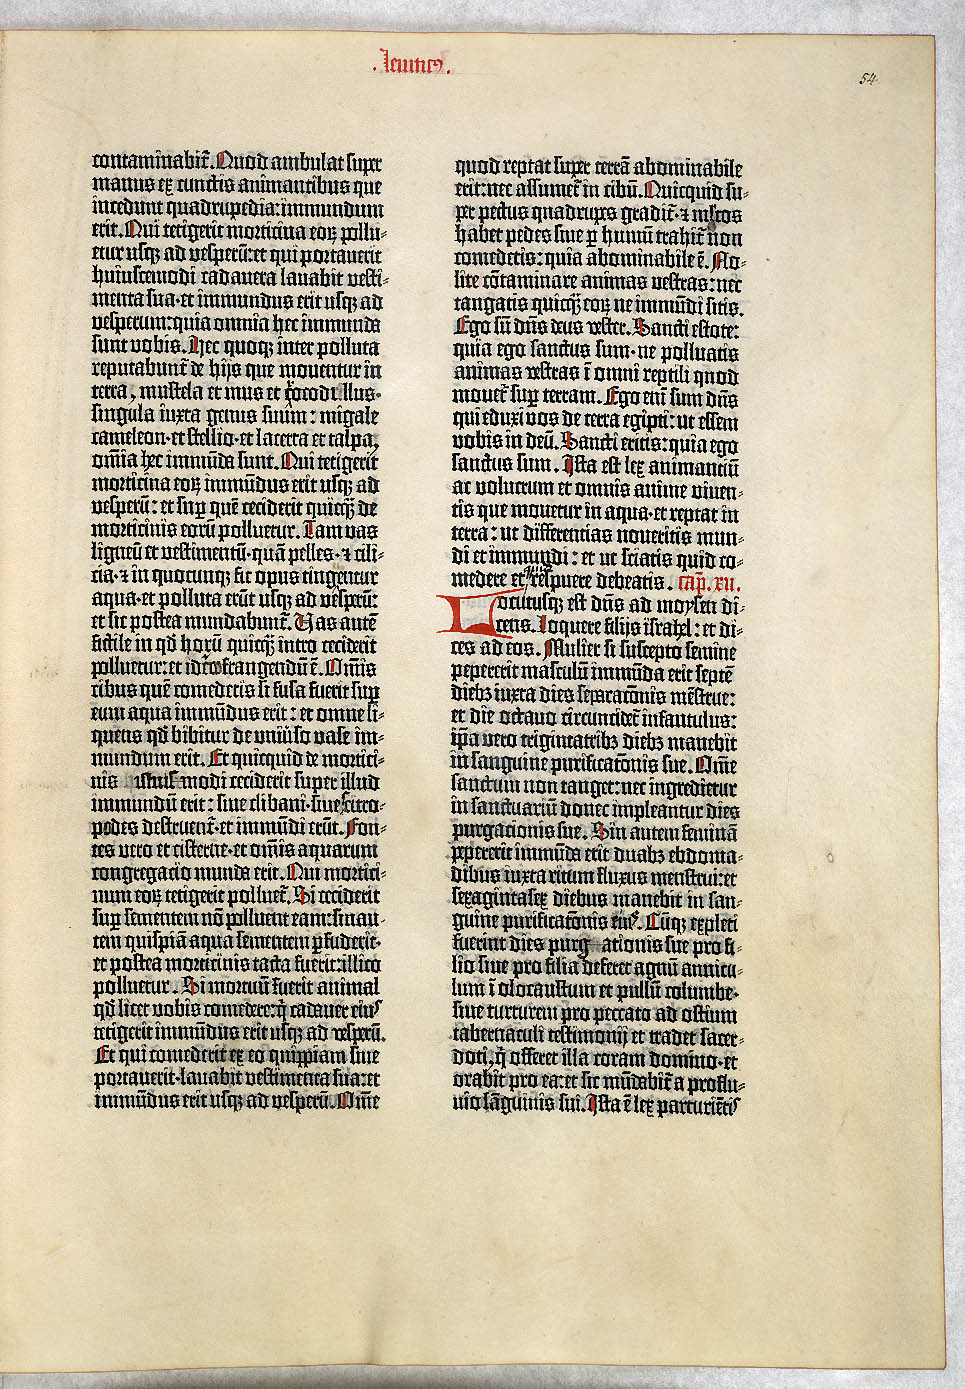 .leuitic9.
54
contaminabit̃. Quod ambulat super
manus ex cunctis animantibus que
incedunt quadrupedia: immundum
erit. Qui tetigerit morticina eoꝝ pollu-
etur usqꝫ ad vesperũ: et qui portauerit
huiuscemodi cadauera lauabit vesti-
menta sua· et immundus erit usqꝫ ad
vesperum: quia omnia hec immunda
sunt vobis. Hec quoqꝫ inter polluta
reputabunt̃ de hijs que mouentur in
terra, mustela et mus et cocodrillus·
singula iuxta genus suum: migale
cameleon· et stellio· et lacerta et talpa,
om̃ia hec immũda sunt. Qui tetigerit
morticina eoꝝ immũdus erit usqꝫ ad
vesperũ: et suꝑ quẽ ceciderit quicqꝫ̃ de
morticinis eorũ polluetur. Tam vas
ligneũ et vestimentũ· quã pelles· ⁊ cili-
cia· ⁊ in quocunqꝫ fit opus tingentur
aqua· et polluta erũt usqꝫ ad vesperũ:
et sic postea mundabunt̃. Vas autẽ
fictile in qd̃ horũ quicqꝫ̃ intro ceciderit
polluetur: et idcirco frangendũ ẽ. Om̃is
cibus quẽ comedetis si fusa fuerit suꝑ
eum aqua immũdus erit: et omne li-
quens qd̃ bibitur de vniũso vase im-
mundum erit. Et quicquid de mortici-
nis istius modi ceciderit super illud
immundũ erit: siue clibani· siue citro-
podes destruent̃· et immũdi erũt. Fon-
tes vero et cisterne· et om̃is aquarum
congregacio munda erit. Qui mortici-
num eoꝝ tetigerit polluet̃. Si ceciderit
suꝑ sementem nõ polluent eam: sin au-
tem quispiã aqua sementem ꝑfuderit·
et postea morticinis tacta fuerit: illico
polluetur. Si mortuũ fuerit animal
qd̃ licet vobis comedere: q̃ cadauer eiꝰ
tetigerit immũdus erit usqꝫ ad vesperũ.
Et qui comederit ex eo quippiam siue
portauerit· lauabit vestimenta sua: et
immũdus erit usqꝫ ad vesperũ. Om̃e
quod reptat super terrã abominabile
erit: nec assumet̃ in cibũ. Quicquid su-
per pectus quadrupes gradit̃· ⁊ m̃ltos
habet pedes siue ꝑ humũ trahit̃ non
comedetis: quia abominabile ẽ. No-
lite cõtaminare animas vestras: nec
tangatis quicqꝫ̃ eoꝝ ne immũdi sitis.
Ego sũ dñs deus vester. Sancti estote:
quia ego sanctus sum· ne polluatis
animas vestras ĩ omni reptili quod
mouet̃ suꝑ terram. Ego enĩ sum dñs
qui eduxi vos de terra egipti: ut essem
vobis in deũ. Sancti eritis: quia ego
sanctus sum. Ista est lex animanciũ
ac volucrum et omnis anime viuen-
tis que mouetur in aqua· et reptat in
terra: ut differentias noueritis mun-
di et immundi: et ut sciatis quid co-
medere et quid respuere debeatis. cap̃. xii.
Locutusqꝫ est dñs ad moysen di-
cens. Loquere filijs israhel: et di-
ces ad eos. Mulier si suscepto semine
pepererit masculũ immũda erit septẽ
diebꝫ iuxta dies separacõnis mẽstrue:
et die octauo circumcidet̃ infantulus:
ip̃a vero trigintatribꝫ diebꝫ manebit
in sanguine purificatõnis sue. Om̃e
sanctum non tanget: nec ingredietur
in sanctuariũ donec impleantur dies
purgacionis sue. Sin autem feminã
pepererit immũda erit duabꝫ ebdoma-
dibus iuxta ritum fluxus menstrui: et
sexagintasex diebus manebit in san-
guine purificatõnis eiꝰ. Cũqꝫ expleti
fuerint dies purgationis sue pro fi-
lio siue pro filia: deferet agnũ annicu-
lum ĩ olocaustum et pullũ columbe·
siue turturem pro peccato ad ostium
tabernaculi testimonij et tradet sacer-
doti, q̃ offeret illa coram domino· et
orabit pro ea: et sic mũdabit̃ a proflu-
uio sãguinis sui. Ista ẽ lex parturiẽtꝭ